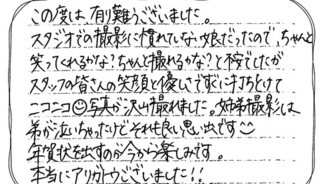 この度は、有り難うございました。
スタジオでの撮影に慣れてない娘だったので、ちゃんと
笑ってくれるかな？ちゃんと撮れるかな？と不安でしたが
スタッフの皆さんの笑顔と優しさですぐに打ちとけて
ニコニコ☺写真が沢山撮れました。姉弟撮影は
弟が泣いちゃったけどそれも良い思い出です☺
年賀状を出すのが今から楽しみです。
本当にアリガトウございました!!